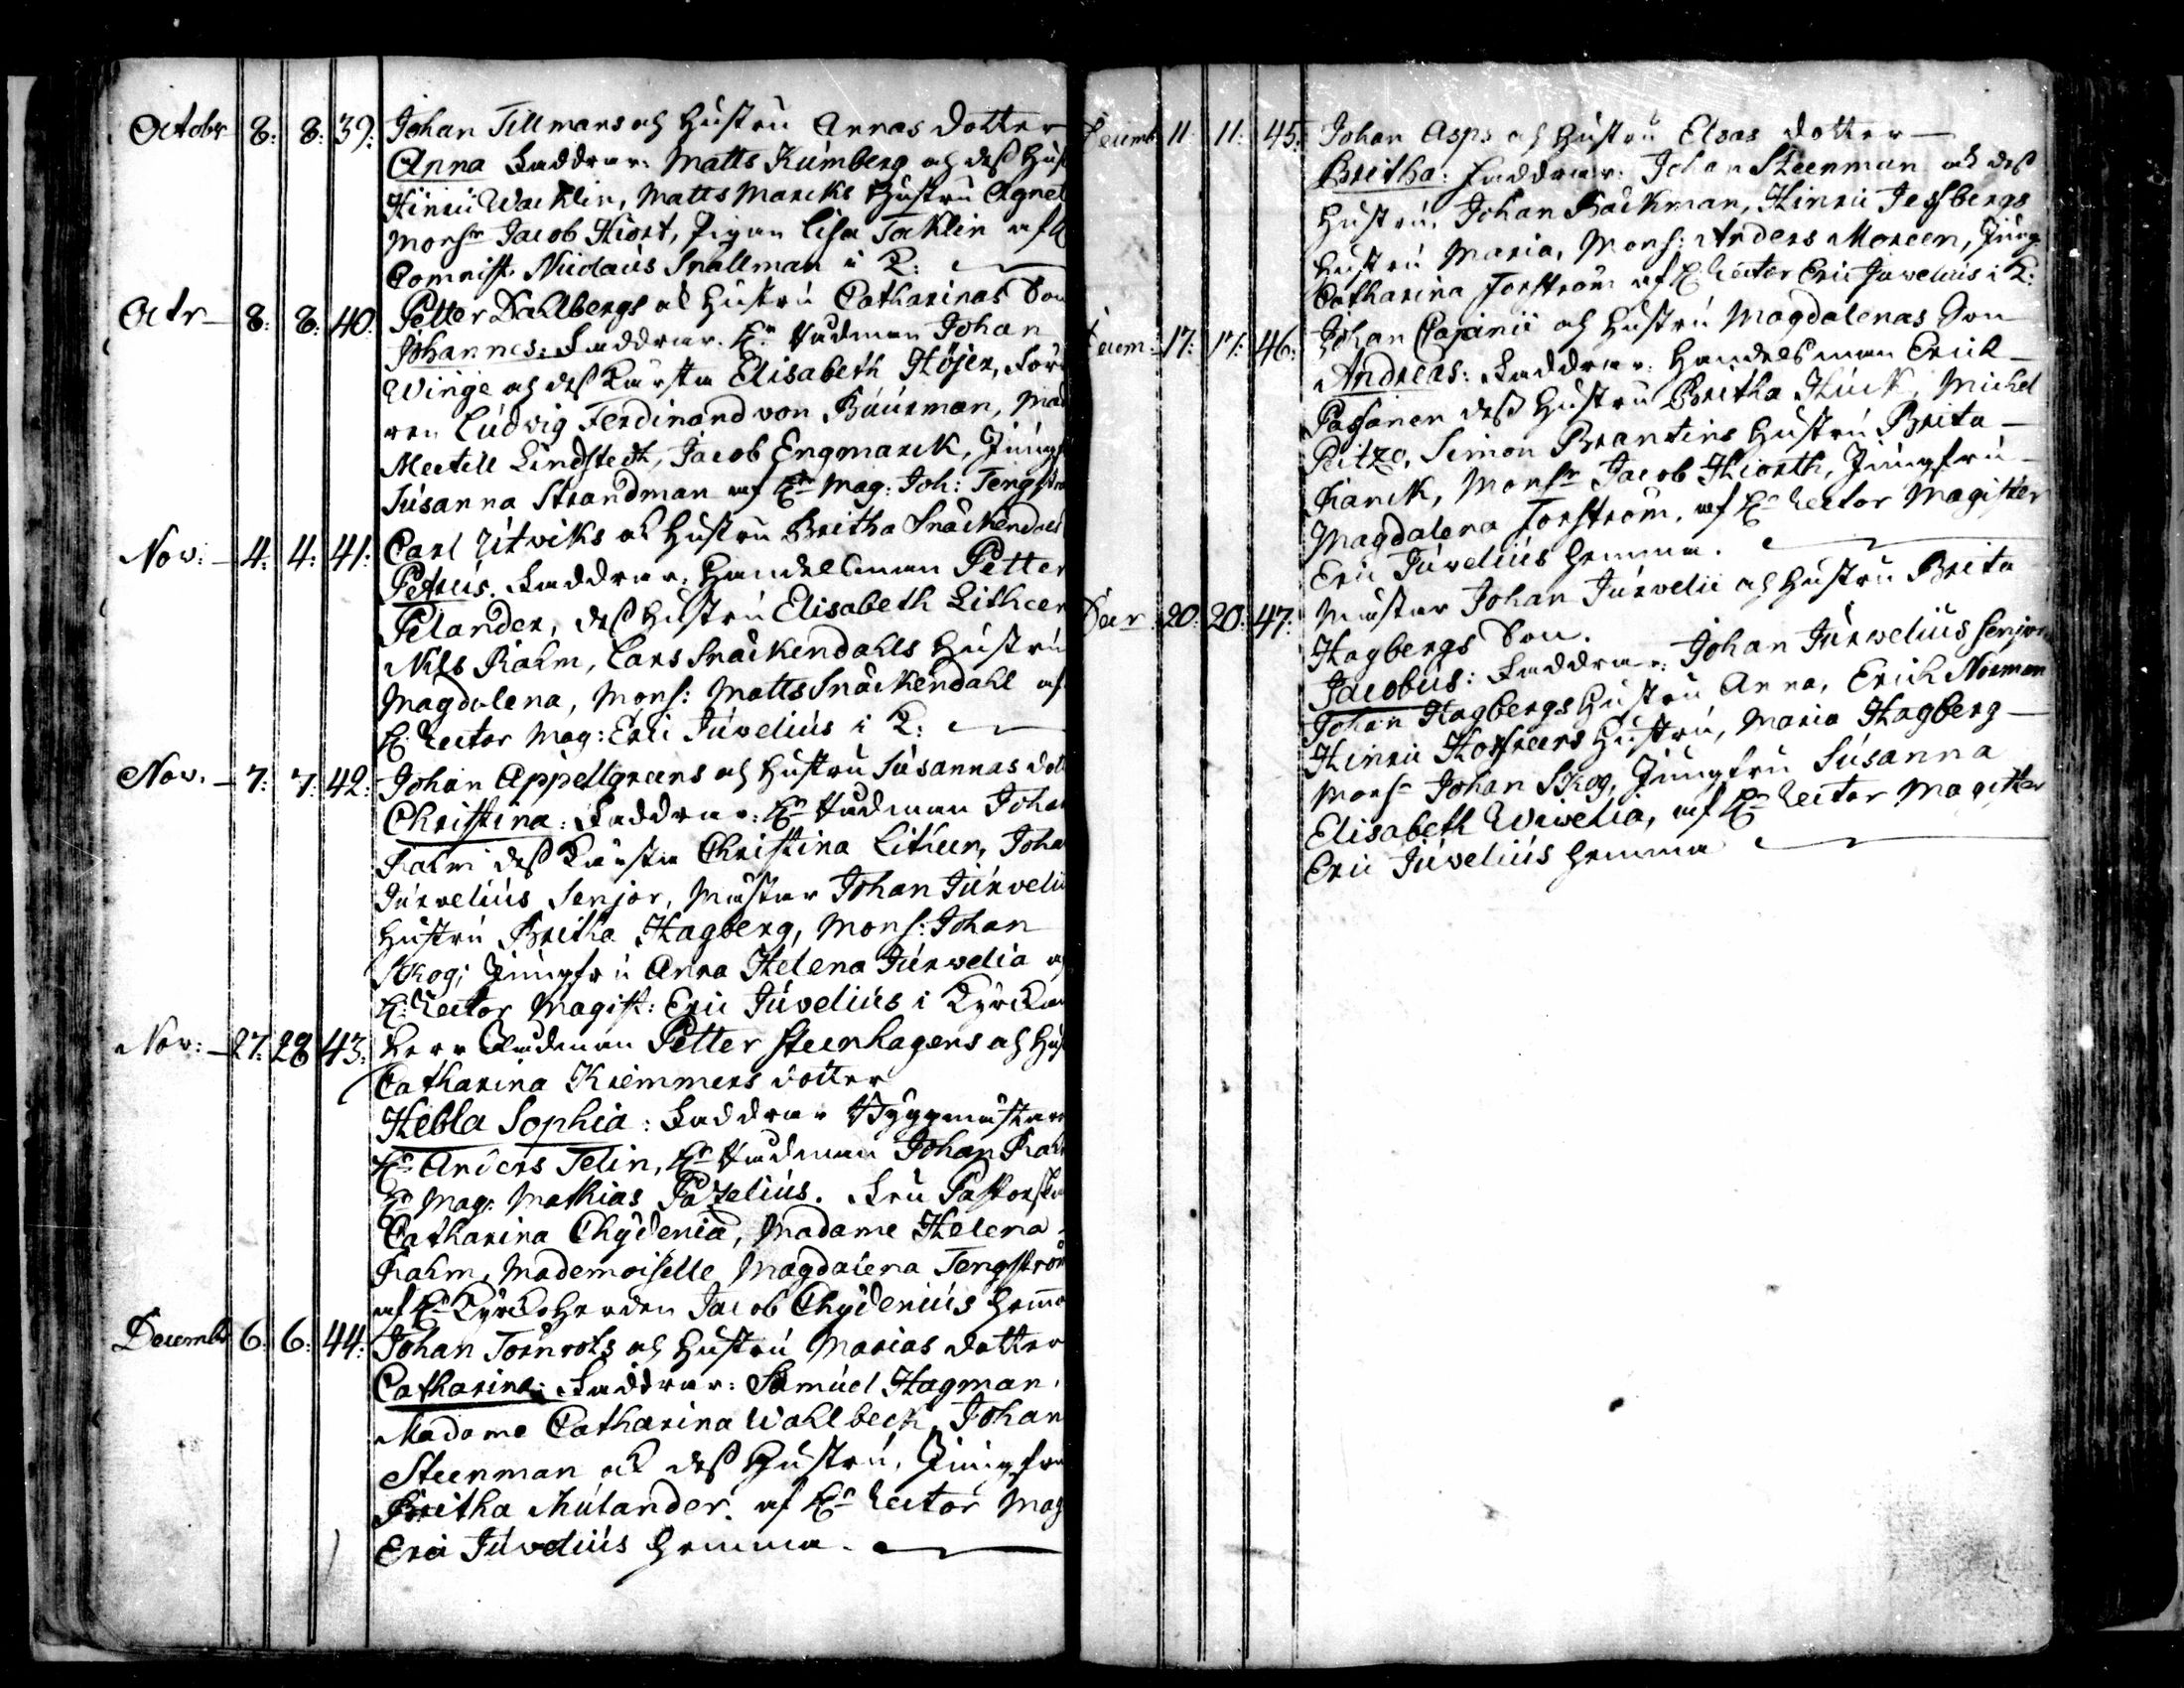 Octobr 8: 8: 39: Johan Tillmans och Hustru Annas dotter
Anna Faddrar: Matts Kumberg och dess Hust
Hinric Wacklin, Matts Marcks Hustru Agnet
Monsr Jacob Hiort, Pigan Lisa Tacklin af
Comnist. Nicolaus Snallman i K:
Octr 8: 8: 40: Petter Dahlbergs och Hustru Catharinas Son
Johannes: Faddrar: Hr Rådman Johan
Winge och dess Kärsta Elisabeth Höjer,
Ludwig Ferdinand von Buurman, Mad
Mertill Lindstedt, Jacob Engmarck, Jungf
Susanna Strandman af Hr Mag: Joh: Tengström
Nov: 4: 4: 41: Carl Utwiks och Hustru Britha Snäckendahls
Petrus. Faddrar: Handelsman Petter
Pelander, dess Hustru Elisabeth Litheen
Nils Kahm, Lars Snäckendahls Hustru
Magdalena, Mons: Matts Snäckendahl af
H: Rector Mag: Eric Juvelius i K:
Nov. 7: 7: 42: Johan Appellgreens och Hustru Susannas dott
Christina: Faddrar: Hr Rådman Johan
Kahm dess Kärsta Christina Litheen, Joha
Jurvelius Senjor, Mästar Johan Jurvelii
Hustru Britha Hagberg, Mons: Johan
Skog, Jungfru Anna Helena Jurvelia af
H: Rector Magist: Eric Juvelius i Kyrckan
Nov: 27: 28 43: Herr Rådman Petter Steenhagens och Hust
Catharina Kremmers dotter
Hebla Sophia: Faddrar Byggmästare
Hr Anders Telin, Hr Rådman Johan Kahm
Hr Mag: Mathias Pazelius. Fru Pastorskan
Catharina Chydenia, Madame Helena
Kahm, Mademoiselle Magdalena Tengström
af Hr Kyrckoherden Jacob Chydenius hemma
Decembr 6: 6: 44: Johan Törnrots och Hustru Marias dotter
Catharina: Faddrar: Samuel Hagman.
Madame Catharina Wahlbeck, Johan
Steenman och dess Hustru, Jungfru
Britha Thulander. af Hr Rector Mag
Eric Juvelius hemma.
Decemb 11 11: 45: Johan Asps och Hustru Elsas dotter
Britha: Faddrar: Johan Steenman och dess
Hustru, Johan Backman, Hinric Jessbergs
Hustru Maria, Mons: Anders Moreen, Jungf
Catharina Forström af H: Rector Eric Juvelius i K:
Decem: 17: 17: 46: Johan Cajanii och Hustru Magdalenas Son
Andreas: Faddrar: Handelsman Erick
Passanen dess Hustru Britha Huck, Michel
Peitzo, Simon Brantins Hustru Brita
Karck, Monsr Jacob Hiorth, Jungfru
Magdalena Forström, af Hr Rector Magister
Eric Juvelius hemma.
Decr 20: 20: 47: Mästar Johan Jurvelii och Hustru Brita
Hagbergs Son.
Jacobus: Faddrar: Johan Jurvelius senjor
Johan Hagbergs Hustru Anna, Erich Norman
Hinric Hustru, Maria Hagberg
Monsr Johan Skog, Jungfru Susanna
Elisabeth Wivelia, af Hr Rector Magister
Eric Juvelius hemma